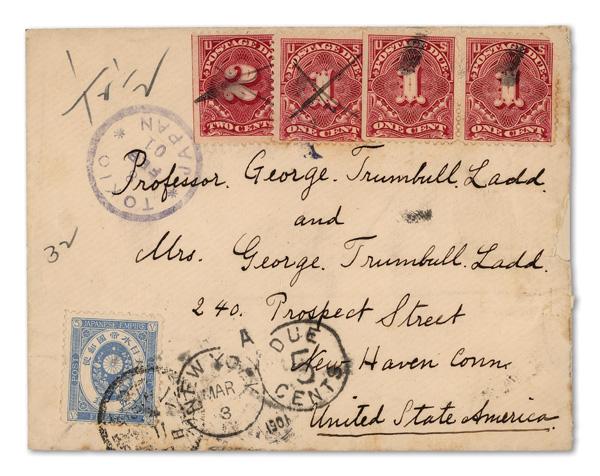 U S
POSTAGE DUE
2
TWO CENTS
U S
POSTAGE DUE
1
ONE CENT
U S
POSTAGE DUE
1
ONE CENT
U S
POSTAGE DUE
1
ONE CENT
TOKIO
JAPAN
01
Professor. George. Trumbull. Ladd.
and
Mrs. George. Trumbull. Ladd.
32
240. Prospect Street
New Haven Conn.
United State America.
JAPANESE EMPIRE
大日本帝國郵便
POST
A
NEW YORK
MAR
8
DUE
5
CENTS
1901